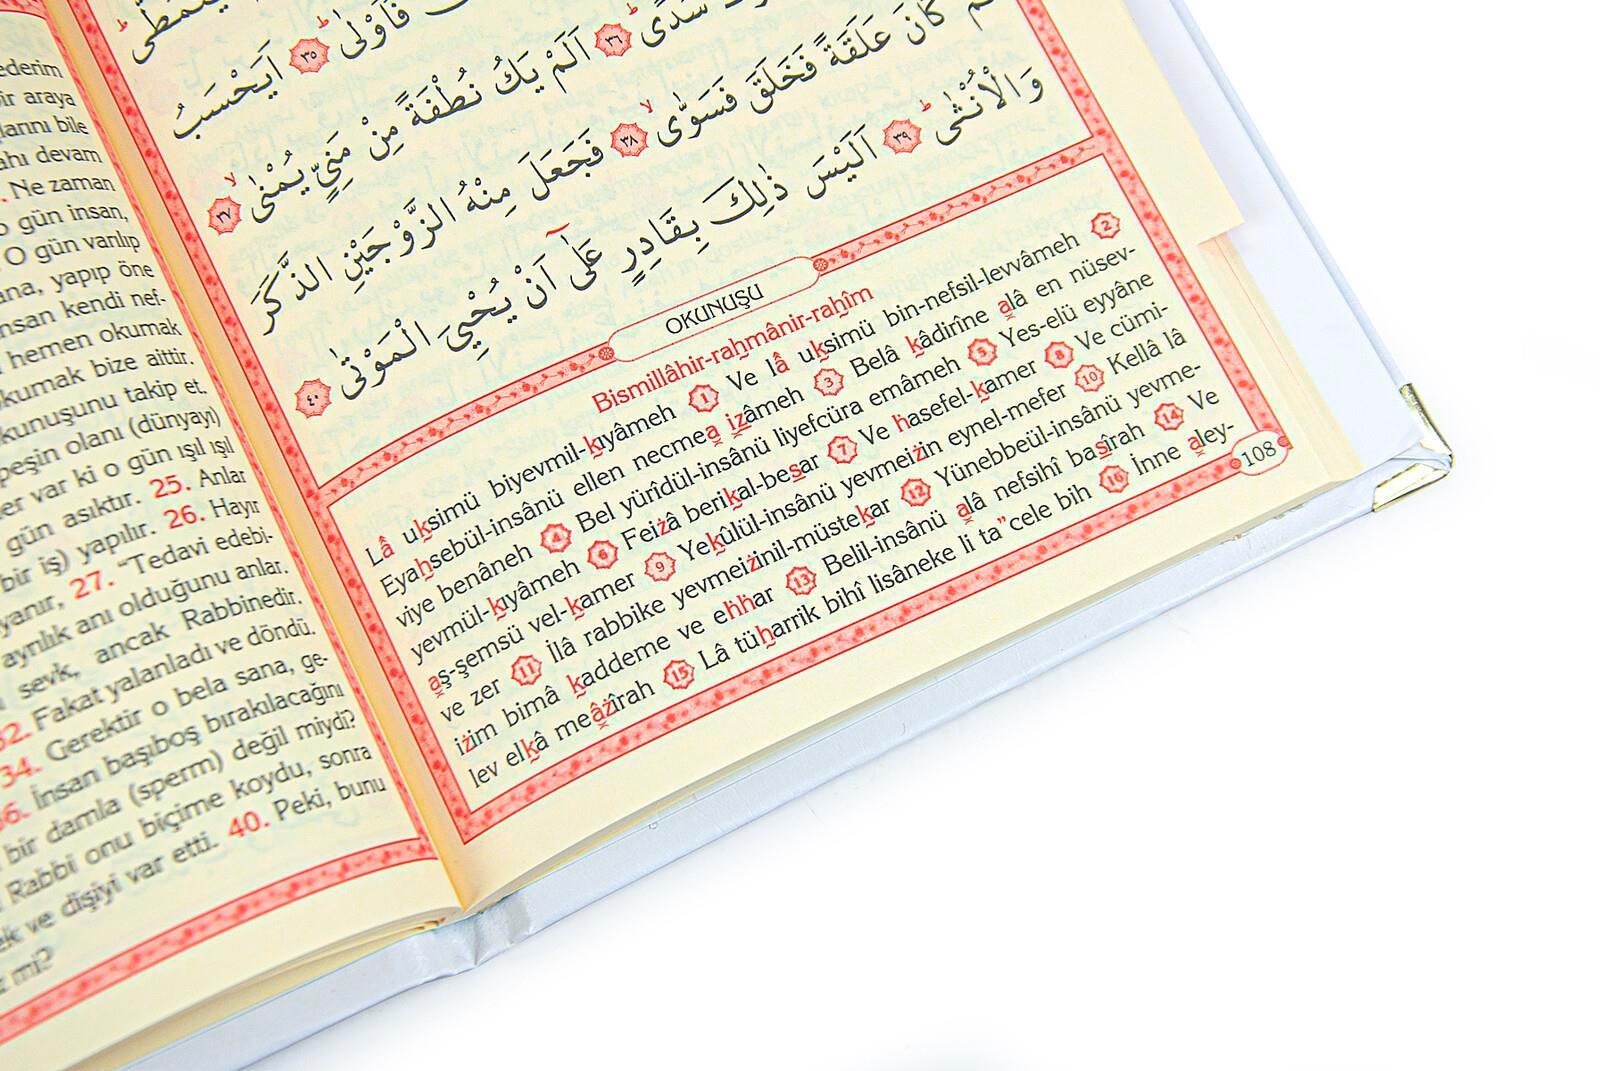 ederim
bir araya
larını bile
ahı devam
. Ne zaman
o gün insan,
. O gün varılıp
ana, yapıp öne
insan kendi nef-
hemen okumak
kumak bize aittir.
kunuşunu takip et.
peşin olanı (dünyayı)
er var ki o gün ışıl ışıl
gün asıktır. 25. Anlar
bir iş) yapılır. 26. Hayır
yanır, 27. “Tedavi edebi-
ayrılık anı olduğunu anlar.
sevk, ancak Rabbinedir.
32. Fakat yalanladı ve döndü.
34. Gerektir o bela sana, ge-
36. İnsan başıboş bırakılacağını
bir damla (sperm) değil miydi?
Rabbi onu biçime koydu, sonra
ek ve dişiyi var etti. 40. Peki, bunu
mi?
فَاَوْلٰى ﴿٣٥﴾ اَيَحْسَبُ
سُدًى ﴿٣٦﴾ اَلَمْ يَكُ نُطْفَةً مِنْ مَنِيٍّ يُمْنٰى ﴿٣٧﴾
كَانَ عَلَقَةً فَخَلَقَ فَسَوّٰى ﴿٣٨﴾ فَجَعَلَ مِنْهُ الزَّوْجَيْنِ الذَّكَرَ
وَالْاُنْثٰى ﴿٣٩﴾ اَلَيْسَ ذٰلِكَ بِقَادِرٍ عَلٰٓى اَنْ يُحْيِيَ الْمَوْتٰى ﴿٤٠﴾
OKUNUŞU
Bismillâhir-rahmânir-rahîm
Lâ uksimü biyevmil-kıyâmeh 1 Ve lâ uksimü bin-nefsil-levvâmeh 2
Eyahsebül-insânü ellen necmea izâmeh 3 Belâ kâdirîne alâ en nüsev-
viye benâneh 4 Bel yürîdül-insânü liyefcüra emâmeh 5 Yes-elü eyyâne
yevmül-kıyâmeh 6 Feiżâ berikal-besar 7 Ve hasefel-kamer 8 Ve cümi-
aş-şemsü vel-kamer 9 Yekûlül-insânü yevmeiżin eynel-mefer 10 Kellâ lâ
ve zer 11 İlâ rabbike yevmeiżinil-müstekar 12 Yünebbeül-insânü yevme-
iżim bimâ kaddeme ve ehhar 13 Belil-insânü alâ nefsihî basîrah 14 Ve
lev elkâ meâżîrah 15 Lâ tüharrik bihî lisâneke li ta”cele bih 16 İnne aley-
108